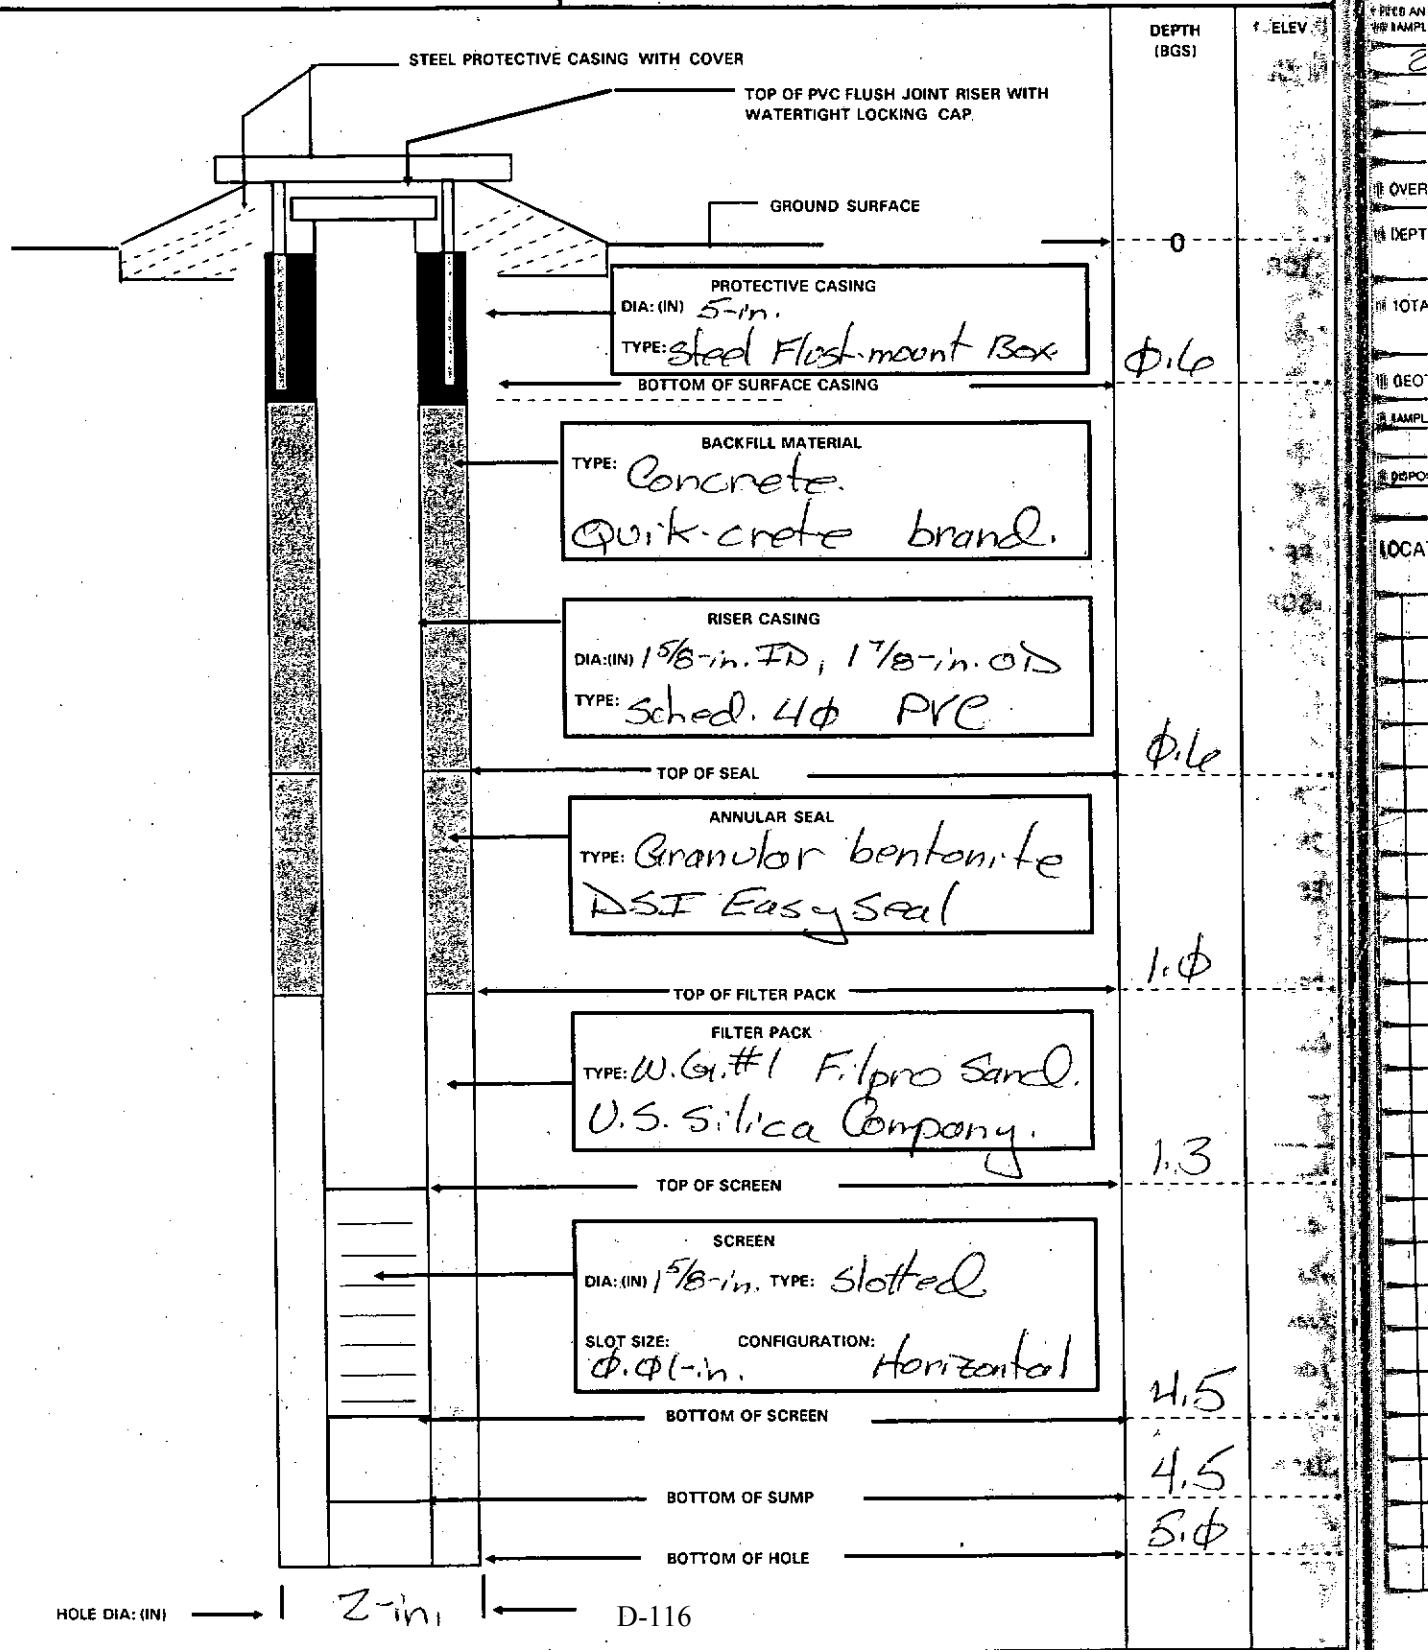 DEPTH
(BGS)
ELEV
STEEL PROTECTIVE CASING WITH COVER
TOP OF PVC FLUSH JOINT RISER WITH
WATERTIGHT LOCKING CAP
GROUND SURFACE
0
PROTECTIVE CASING
DIA: (IN) 5-in.
TYPE: Steel Flust-mount Box
0.6
BOTTOM OF SURFACE CASING
BACKFILL MATERIAL
TYPE: Concrete.
Quik-crete brand.
RISER CASING
DIA:(IN) 1 5/8-in. ID, 1 7/8-in. OD
TYPE: Sched. 40 PVC
0.6
TOP OF SEAL
ANNULAR SEAL
TYPE: Granular bentonite
DSI Easy Seal
1.0
TOP OF FILTER PACK
FILTER PACK
TYPE: W.G. #1 Filpro Sand.
U.S. Silica Company.
1.3
TOP OF SCREEN
SCREEN
DIA: (IN) 1 5/8-in. TYPE: Slotted
SLOT SIZE: CONFIGURATION:
0.01-in. Horizontal
4.5
BOTTOM OF SCREEN
4.5
BOTTOM OF SUMP
5.0
BOTTOM OF HOLE
HOLE DIA: (IN) 2-in.
D-116
OVER
DEPT
TOTA
GEOT
SAMPL
DISPOS
LOCAT